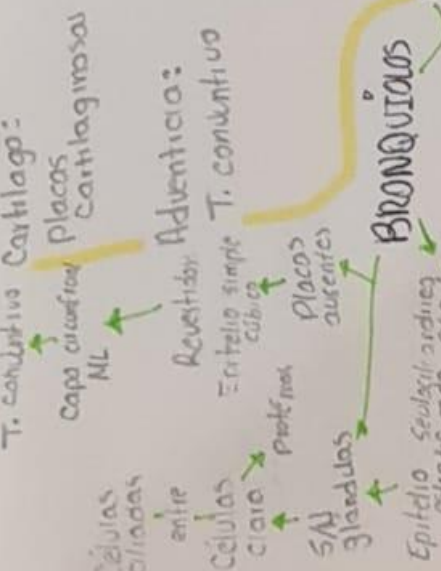 T. conuntivo
Capa circunfron
ML
Cartílago:
Placas
Cartilaginosas
Adventicia:
T. conuntivo
Revestidos
Epitelio simple
cúbico
Placas
ausentes
BRONQUÍOLOS
Células
ciliadas
entre
Células
clara
proteínas
S/N
glándulas
Epitelio